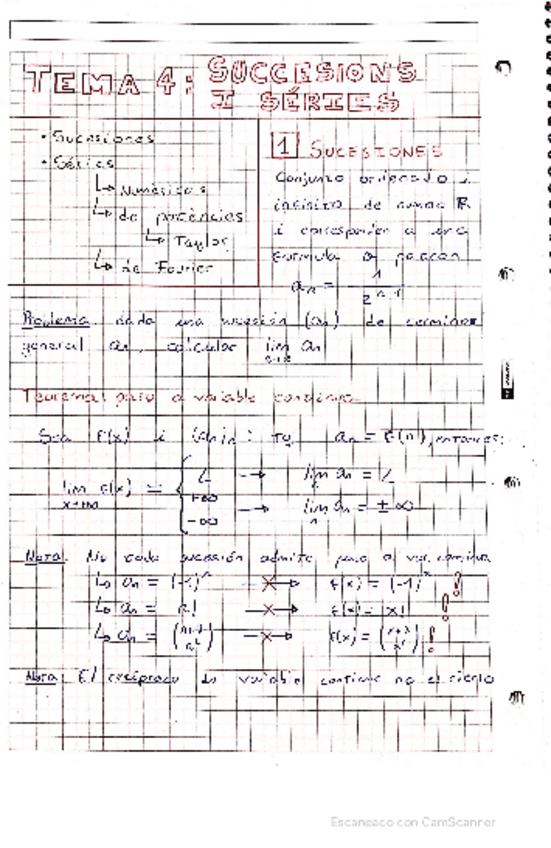 TEMA 4: SUCCESIONS
I SÉRIES
• Sucesiones
• Séries
↳ Numéricas
↳ de potències
↳ Taylor
↳ de Fourier
1 SUCESIONES
Conjunto ordenado i
infinito de R
i corresponden a una
formula o patrón
an = 1
Problema: dada una sucesión (an) de termino
general an, calcular lim an
Teorema: paso a variable continua
Sea f(x) i (an)n : tq an = f(n), entonces:
lim f(x) = { L → lim an = L
x→+∞
+∞
-∞ → lim an = ±∞
Nota: No toda sucesión admite paso a var. continua
↳ an = (-1)^n —✗→ f(x) = (-1)^x !
↳ an = n! —✗→ f(x) = x! !
↳ an = —✗→ f(x) = !
Nota: El recíproco de variable continua no es cierto
Escaneado con CamScanner